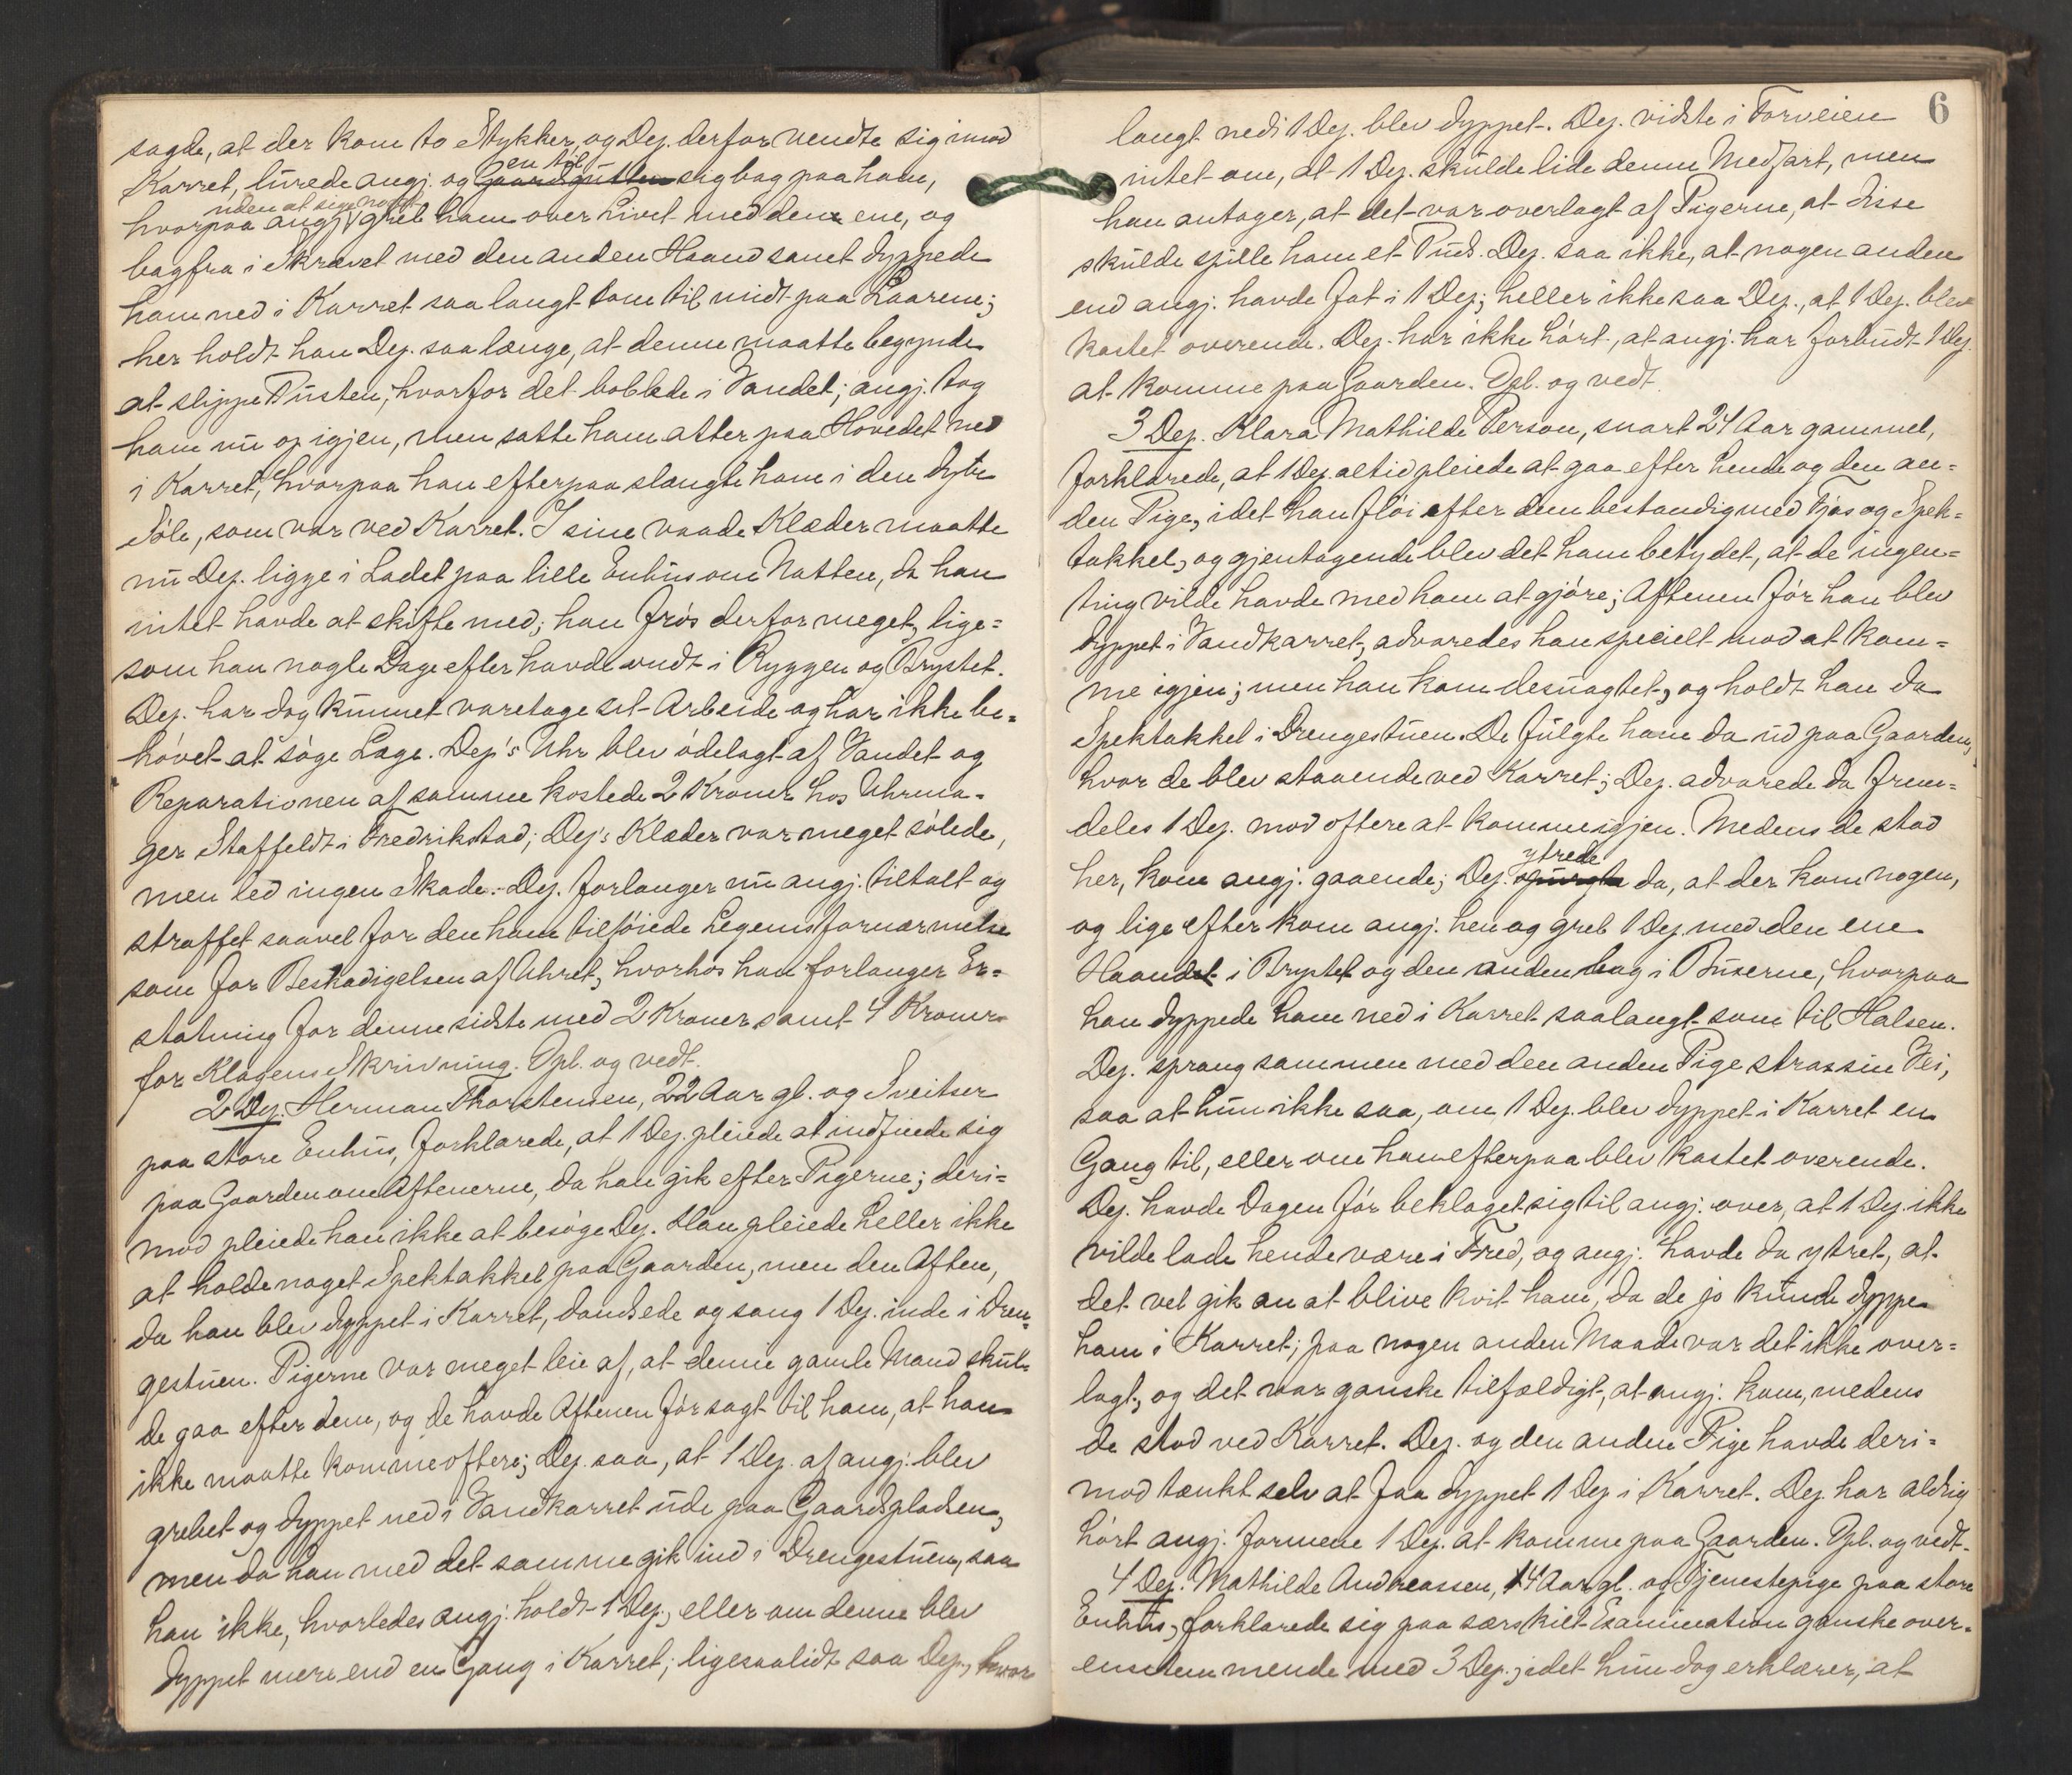 sagde, at der kom to Stykker, og Dep. derfor vendte sig imod
Karret, lurede angj. og en til Gaardsgutten sig bag paa ham,
hvorpaa angj. uden at sige noget greb ham over Livet med den ene, og
bagfra i Skrævet med den anden Haand samt dyppede
ham ned i Karret saa langt som til midt paa Laarene;
her holdt han Dep. saa længe, at denne maatte begynde
at slippe Pusten, hvorfor det boblede i Vandet; angj. tog
ham nu op igjen, men satte ham atter paa Hovedet ned
i Karret, hvorpaa han efterpaa slængte ham i den dybe
Søle, som var ved Karret. I sine vaade Klæder maatte
nu Dep. ligge i Ladet paa lille Enhus om Natten, da han
intet havde at skifte med; han frøs derfor meget, lige=
som han nogle Dage efter havde ondt i Ryggen og Brystet.
Dep. har dog kunnet varetage sit Arbeide og har ikke be=
høvet at søge Læge. Dep's Uhr blev ødelagt af Vandet og
Reparationen af samme kostede 2 Kroner hos Uhrma=
ger Staffeldt i Fredrikstad; Dep's Klæder var meget sølede,
men led ingen Skade. - Dep. forlanger nu angj. tiltalt og
straffet saavel for den ham tilføiede Legemsfornærmelse
som for Beskadigelsen af Uhret, hvorhos han forlanger Er=
statning for denne sidste med 2 Kroner samt 4 Kroner
for Klagens Skrivning. Opl. og vedt.
2 Dep. Herman Thorstensen, 22 Aar gl. og Sveitser
paa store Enhus, forklarede, at 1 Dep. pleiede at indfinde sig
paa Gaarden om Aftenerne, da han gik efter Pigerne; deri=
mod pleiede han ikke at besøge Dep. Han pleiede heller ikke
at holde noget Spektakkel paa Gaarden, men den Aften,
da han blev dyppet i Karret, dandsede og sang 1 Dep. inde i Dren=
gestuen. Pigerne var meget leie af, at denne gamle Mand skul=
de gaa efter dem, og de havde Aftenen før sagt til ham, at han
ikke maatte komme oftere; Dep. saa, at 1 Dep. af angj. blev
grebet og dyppet ned i Vandkarret ude paa Gaardspladsen,
men da han med det samme gik ind i Drengestuen, saa
han ikke, hvorledes angj. holdt 1 Dep., eller om denne blev
dyppet mere end en Gang i Karret; ligesaalidt saa Dep., hvor
6
langt ned i 1 Dep. blev dyppet. Dep. vidste i Forveien
intet om, at 1 Dep. skulde lide denne Medfart, men
han antager, at det var overlagt af Pigerne, at disse
skulde spille ham et Puds. Dep. saa ikke, at nogen anden
end angj. havde fat i 1 Dep.; heller ikke saa Dep., at 1 Dep. blev
kastet overende. Dep. har ikke hørt, at angj. har forbudt 1 Dep.
at komme paa Gaarden. Opl. og vedt.
3 Dep. Klara Mathilde Person, snart 24 Aar gammel,
forklarede, at 1 Dep. altid pleiede at gaa efter hende og den an=
den Pige, idet han fløi efter dem bestandig med Fjas og Spek=
takkel, og gjentagende blev det ham betydet, at de ingen=
ting vilde havde med ham at gjøre; Aftenen før han blev
dyppet i Vandkarret, advaredes han specielt mod at kom=
me igjen; men han kom desuagtet, og holdt han da
Spektakkel i Drengestuen. De fulgte ham da ud paa Gaarden,
hvor de blev staaende ved Karret; Dep. advarede da frem=
deles 1 Dep. mod oftere at komme igjen. Medens de stod
her, kom angj. gaaende; Dep. ytrede da, at der kom nogen,
og lige efter kom angj. hen og greb 1 Dep. med den ene
Haandet i Brystet og den anden bag i Buxerne, hvorpaa
han dyppede ham ned i Karret saalangt som til Halsen.
Dep. sprang sammen med den anden Pige strax sin Vei,
saa at hun ikke saa, om 1 Dep. blev dyppet i Karret en
Gang til, eller om han efterpaa blev kastet overende.
Dep. havde Dagen før beklaget sig til angj. over, at 1 Dep. ikke
vilde lade hende være i Fred, og angj. havde da ytret, at
det vel gik an at blive kvit ham, da de jo kunde dyppe
ham i Karret; paa nogen anden Maade var det ikke over=
lagt, og det var ganske tilfældigt, at angj. kom, medens
de stod ved Karret. Dep. og den anden Pige havde deri=
mod tænkt selv at faa dyppet 1 Dep i Karret. Dep. har aldrig
hørt angj. formene 1 Dep. at komme paa Gaarden. Opl. og vedt.
4 Dep. Mathilde Andreassen, 14 Aar gl. og Tjenestepige paa store
Enhus, forklarede sig paa særskilt Examination ganske over=
ensstemmende med 3 Dep., idet hun dog erklærer, at